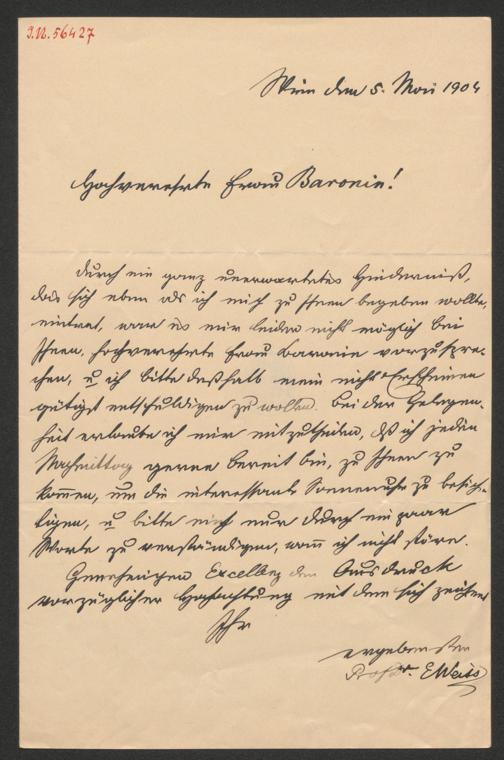 I.N. 56427
Wien den 5. Mai 1904
Hochverehrte Frau Baronin!
Durch ein ganz unerwartetes Hinderniß,
das sich eben als ich mich zu Ihnen begeben wollte,
eintrat, war es mir leider nicht möglich bei
Ihnen, hochverehrte Frau Baronin vorzuspre-
chen, u ich bitte deßhalb mein nicht Erscheinen
gütigst entschuldigen zu wollen. Bei der Gelegen-
heit erlaube ich mir mitzutheilen, dß ich jeden
Nachmittag gerne bereit bin, zu Ihnen zu
kommen, um die interessante Sonnenuhr zu besich-
tigen, u bitte mich nur durch ein paar
Worte zu verständigen, wann ich nicht störe.
Genehmigen Excellenz den Ausdruck
vorzüglicher Hochachtung mit dem sich zeichnet
Ihr
ergebenster
Prof Dr. E Weiss